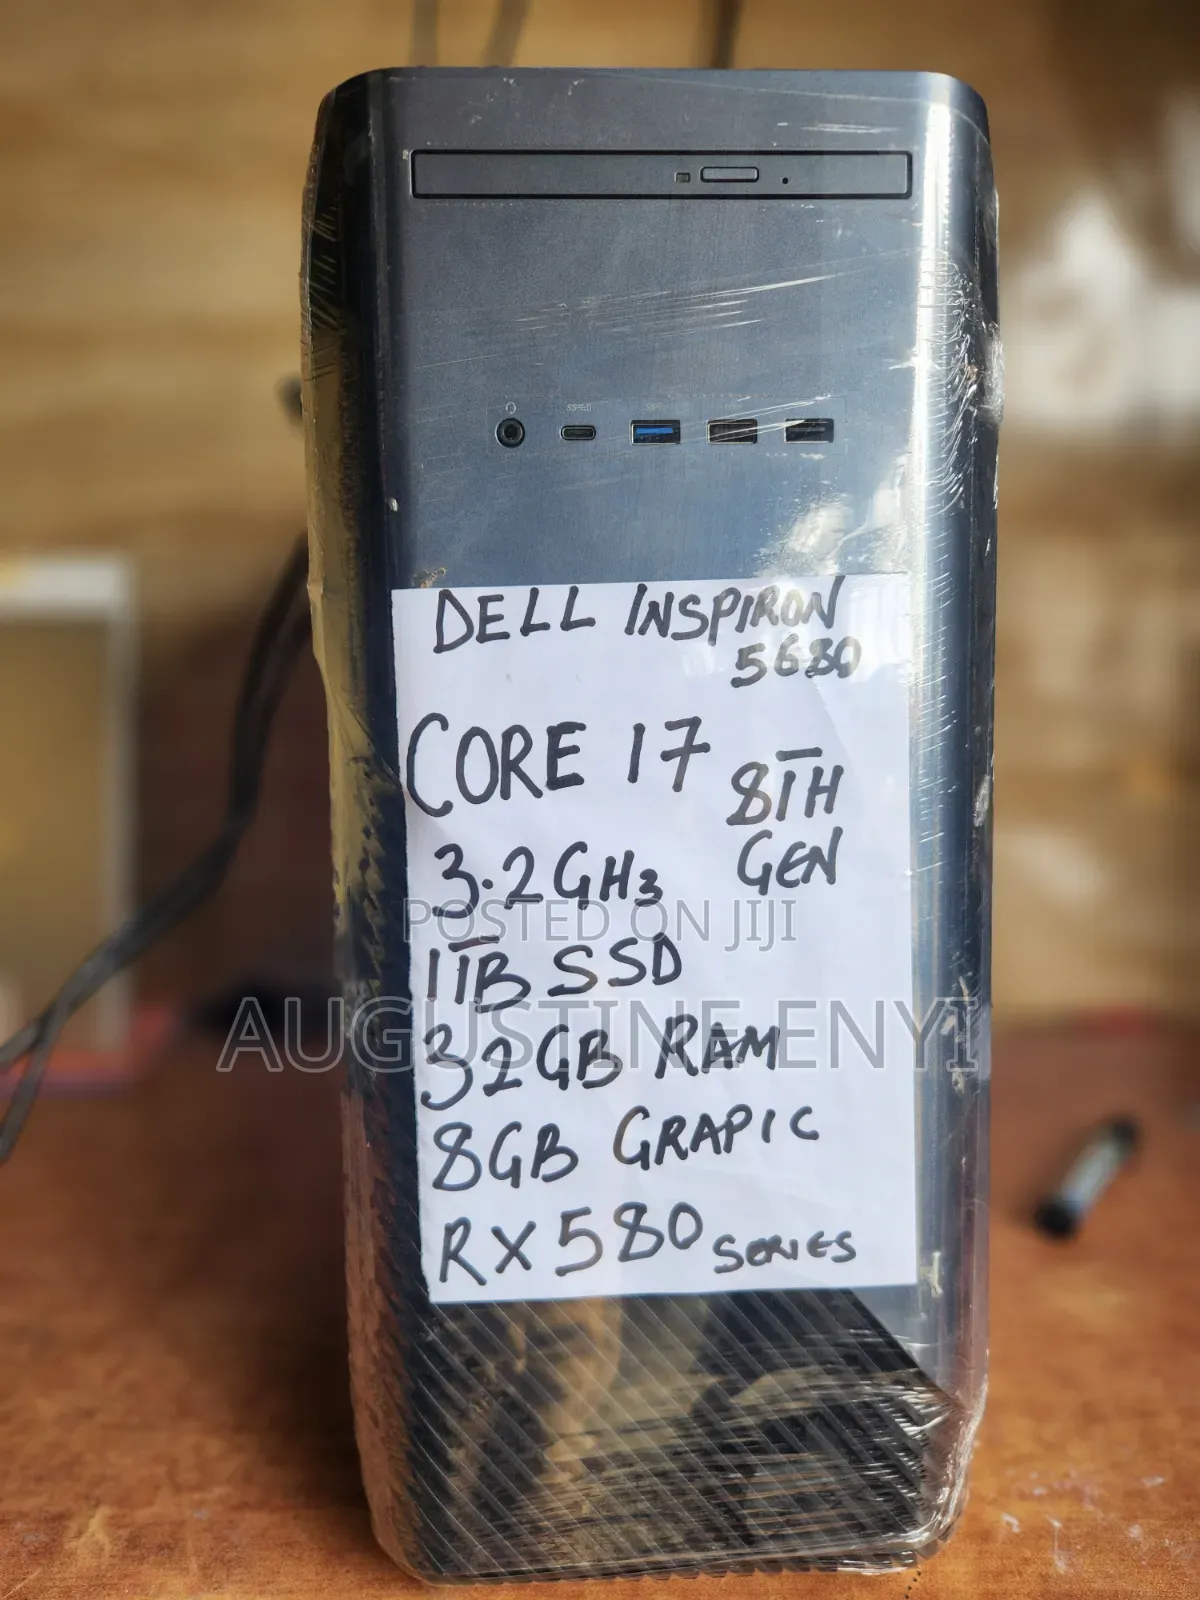 DELL INSPIRON
5680
CORE I7
8TH
GEN
3.2GHz
1TB SSD
32GB RAM
8GB GRAPIC
RX580 SERIES
POSTED ON JIJI
AUGUSTINE ENYI